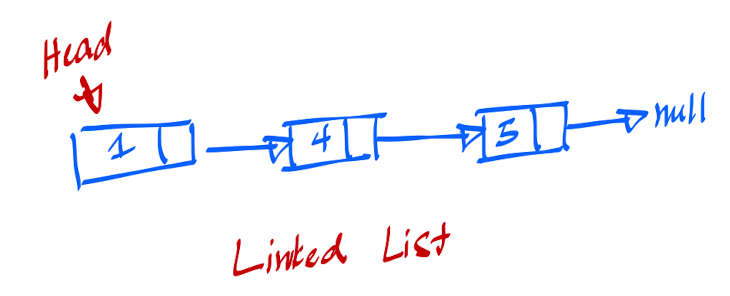 Head
1 4 5 null
Linked List